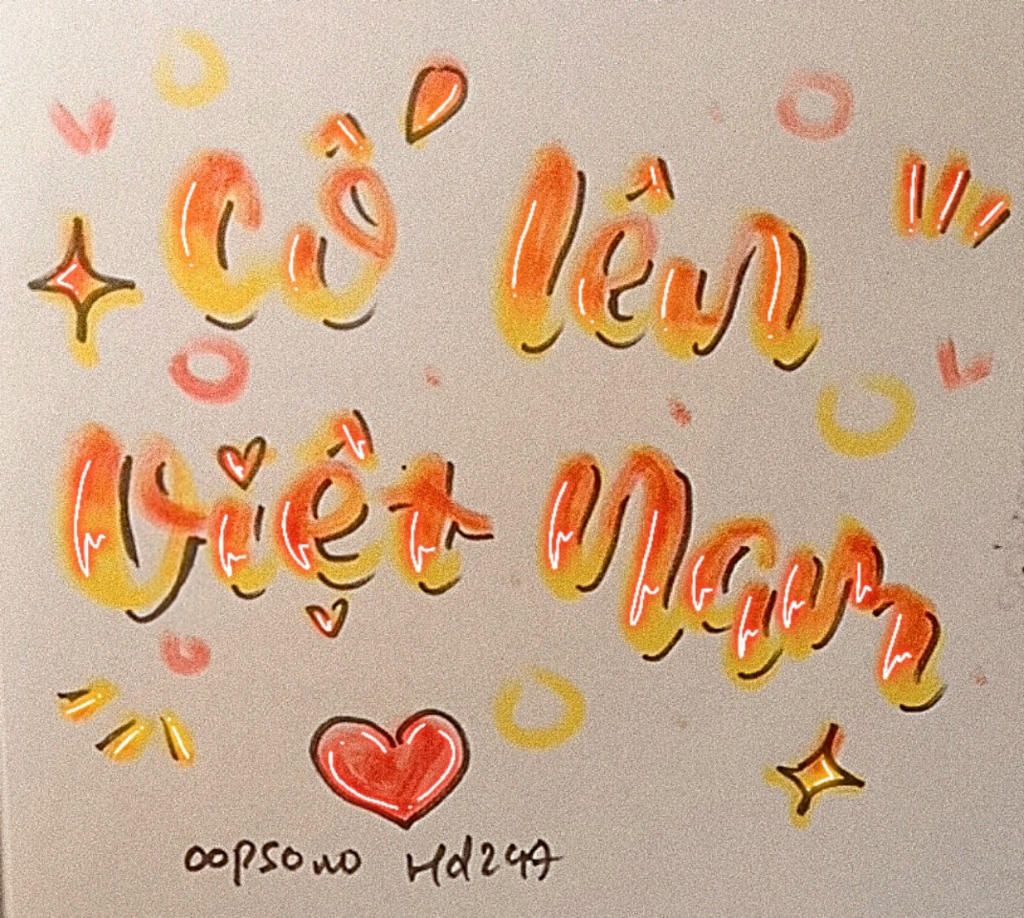 Cố lên
Việt Nam
oopsono Hd247